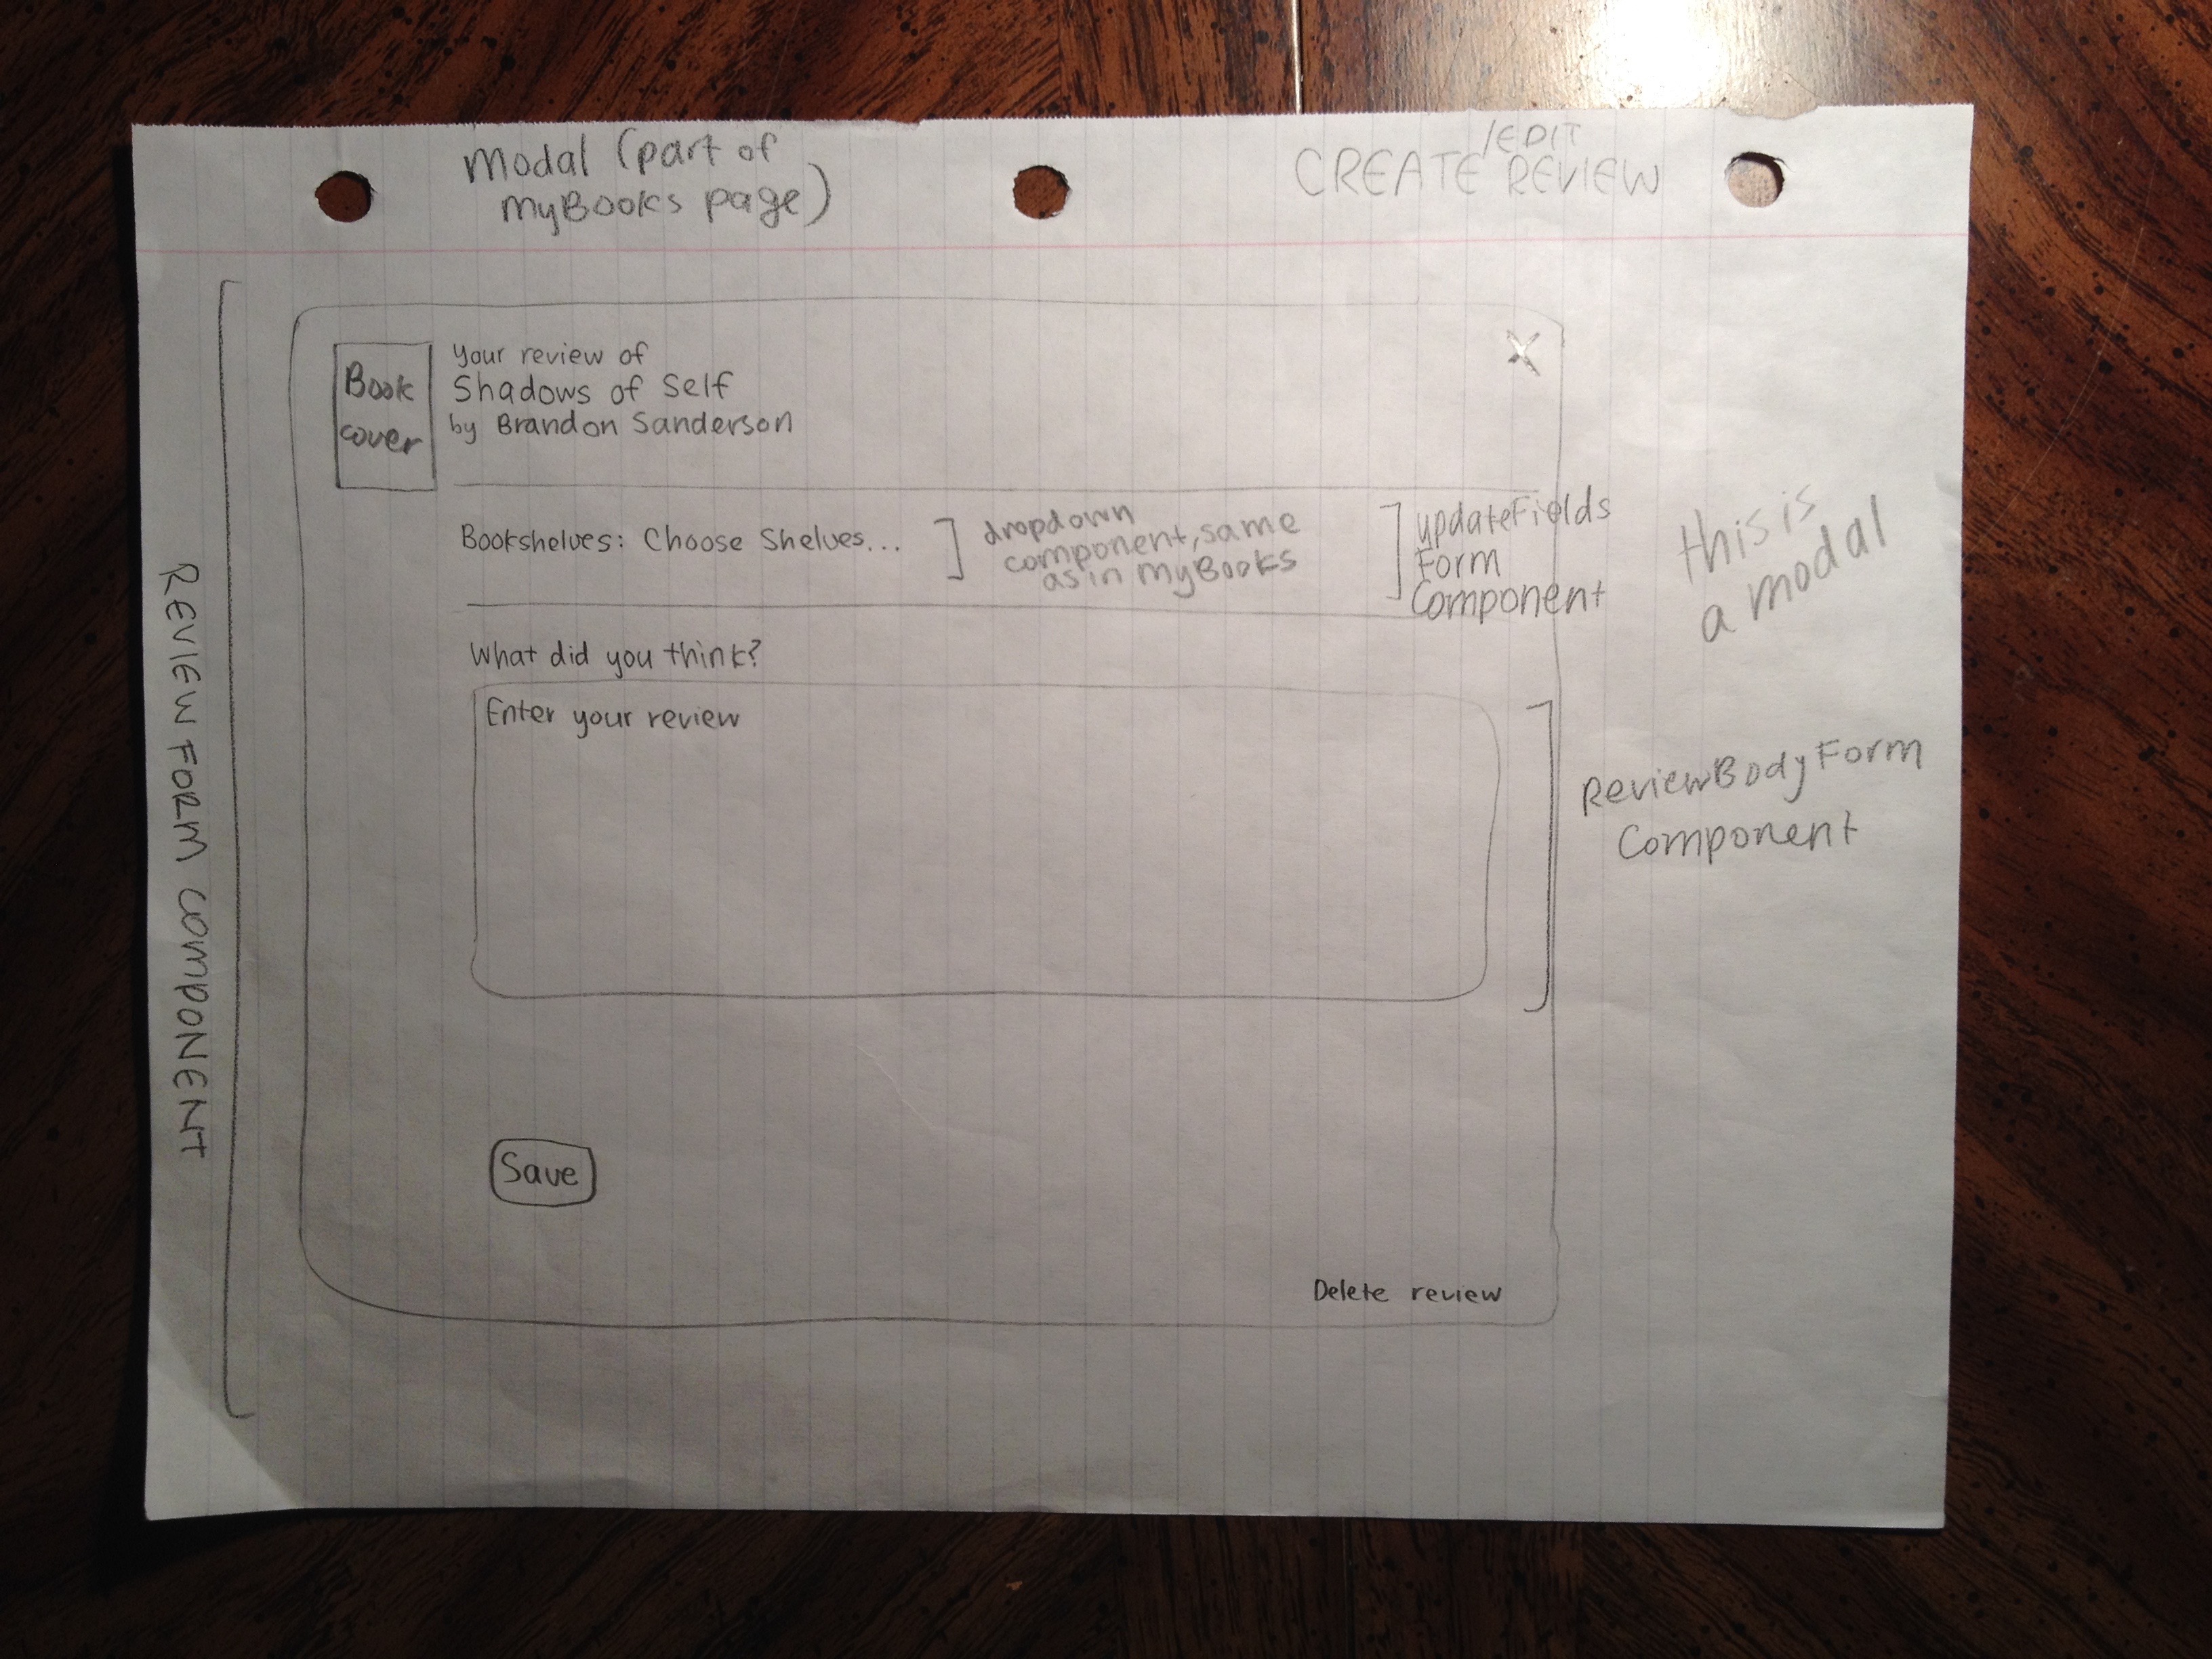 Modal (part of
MyBooks page)
/EDIT
CREATE REVIEW
REVIEW FORM COMPONENT
Book
cover
Your review of
Shadows of Self
by Brandon Sanderson
X
Bookshelves: Choose Shelves...
dropdown
component, same
as in MyBooks
UpdateFields
Form
Component
this is
a modal
What did you think?
Enter your review
ReviewBodyForm
Component
Save
Delete review